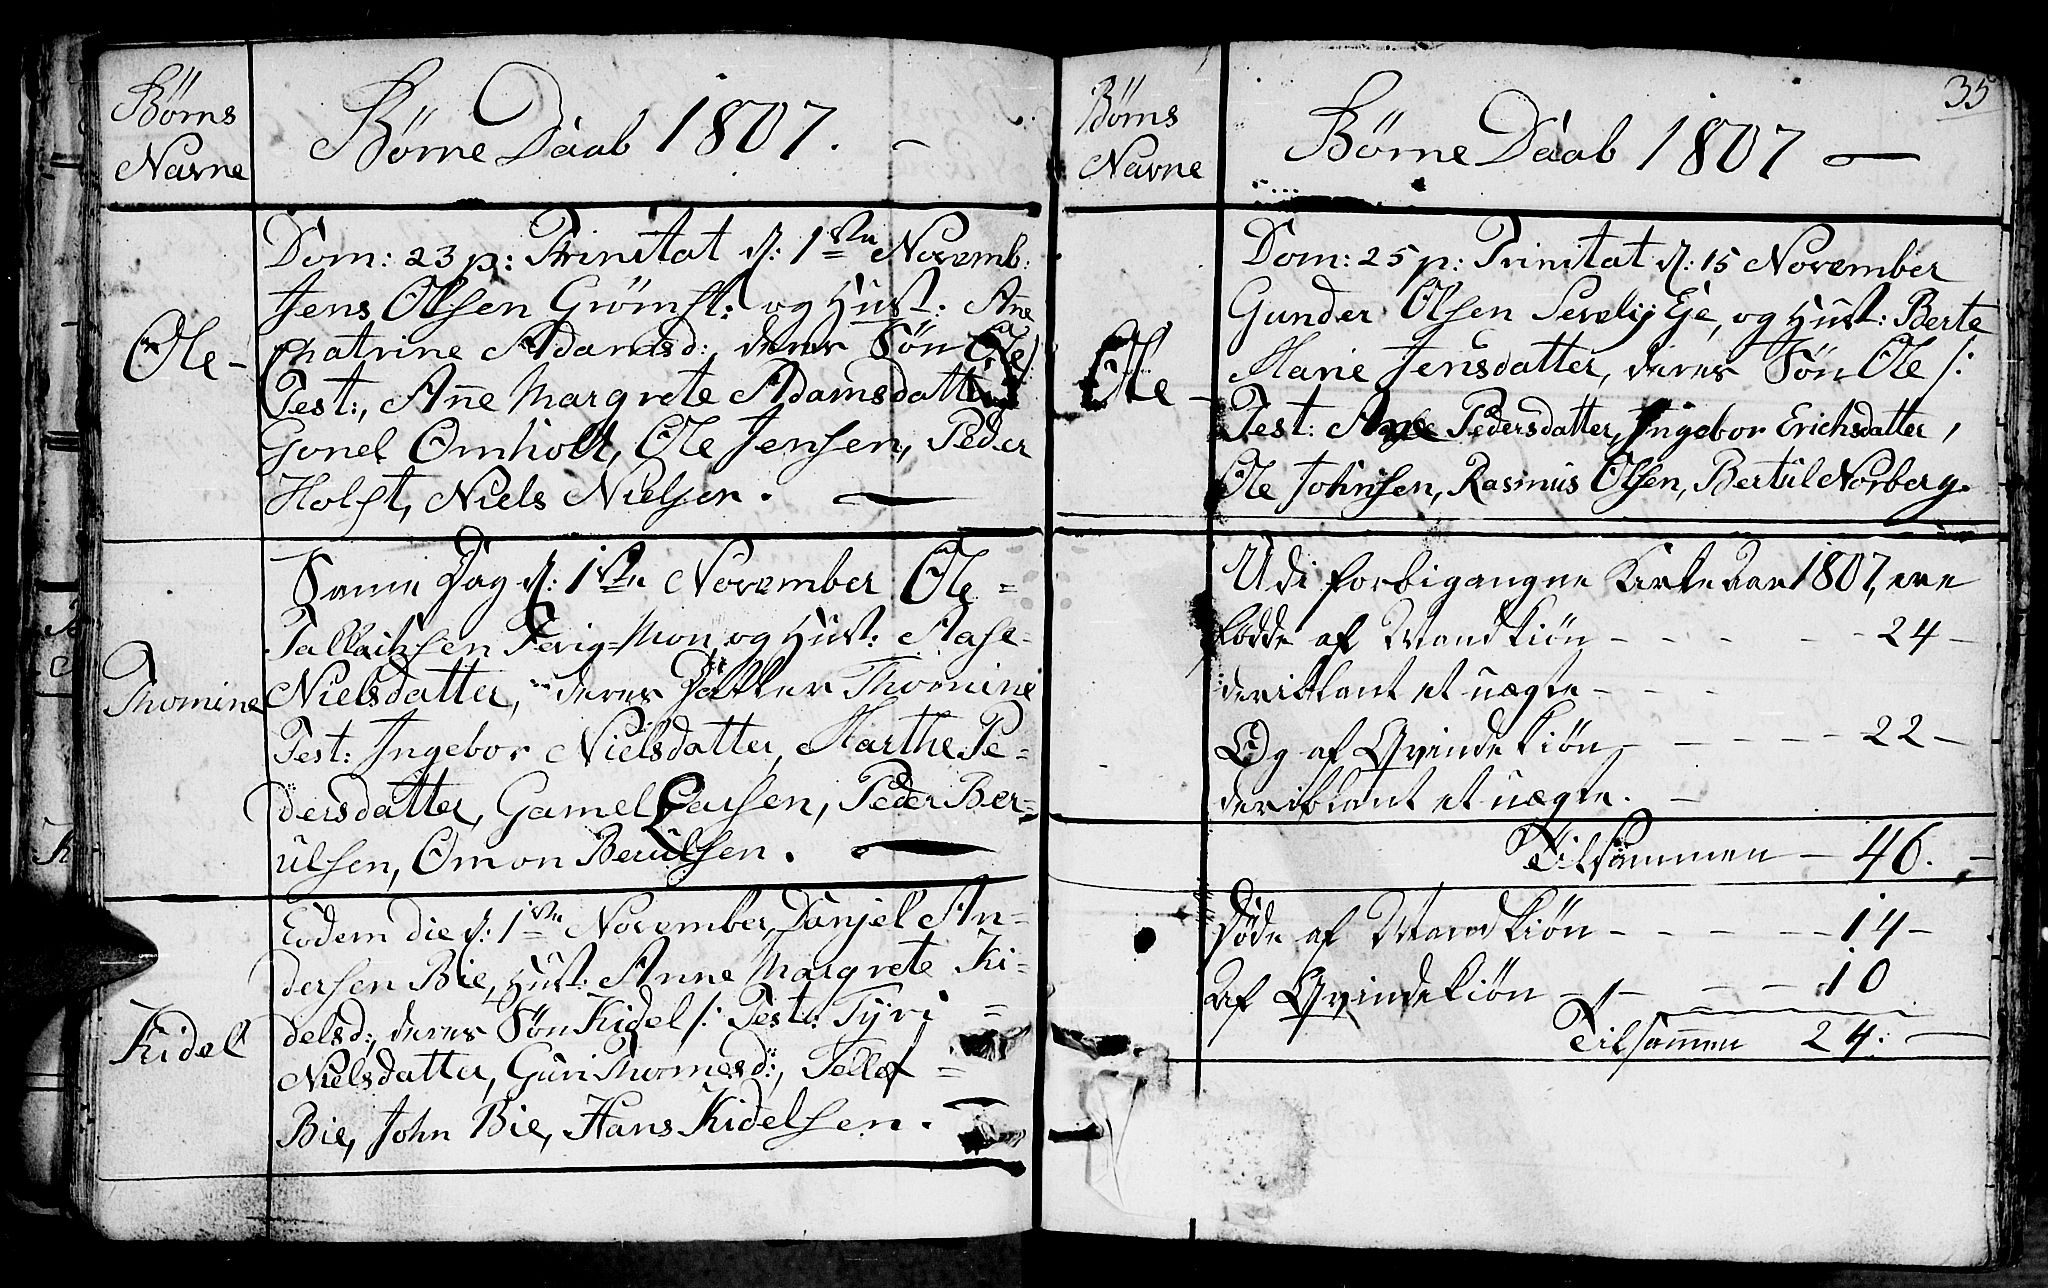 Børns
Navne
Børne Daab 1807. -
Ole -
Dom: 23 p: Trinitat d: 1ste Novemb:
Jens Olsen Grömst: og Hust: Ane
Chatrine Adamsd: deres Søn Ole
Test:, Añe Margrete Adamsdatter
Gonel Omholt, Ole Jensen, Peder
Holst, Niels Nielsen.
Thomine
Samme Dag d: 1ste November Ole =
Tallachsen og Hust: Aase
Nielsdatter, deres Datter Thomine
Test: Ingebor Nielsdatter, Marthe Pe-
dersdatter, Gamel Larsen, Peder Ber-
ulsen, Omon Berulsen.
Kidel
Eodem die d: 1ste November, Danjel An-
dersen Bie, Hust: Anne Margrete Ki-
delsd:, deres Søn Kidel /: Test: Tyri =
Nielsdatter, Guri Thomesd:, Tellef =
Bie, John Bie, Hans Kidelsen.
35
Børns
Navne
Børne Daab 1807 -
Ole -
Dom: 25 p: Trinitat d: 15 November
Gunder Olsen Sevelig Eje, og Hust: Berte
Marie Jensdatter, deres Søn Ole /:
Test: Pedersdatter, Ingebor Erichsdatter,
Ole Johnsen, Rasmus Olsen, Bertul Norberg.
Udi forbigangne Kirke Aar 1807, ere
fødde af Mandkiøn - - - - 24 -
deriblant et uægte - - -
Og af Qvindekiøn, - - - - 22 -
deriblant et uægte. -
Tilsammen - 46. -
Døde af Mandkiøn - - - - 14 -
Af Qvindekiøn - - - - 10
Tilsam̄en 24: -